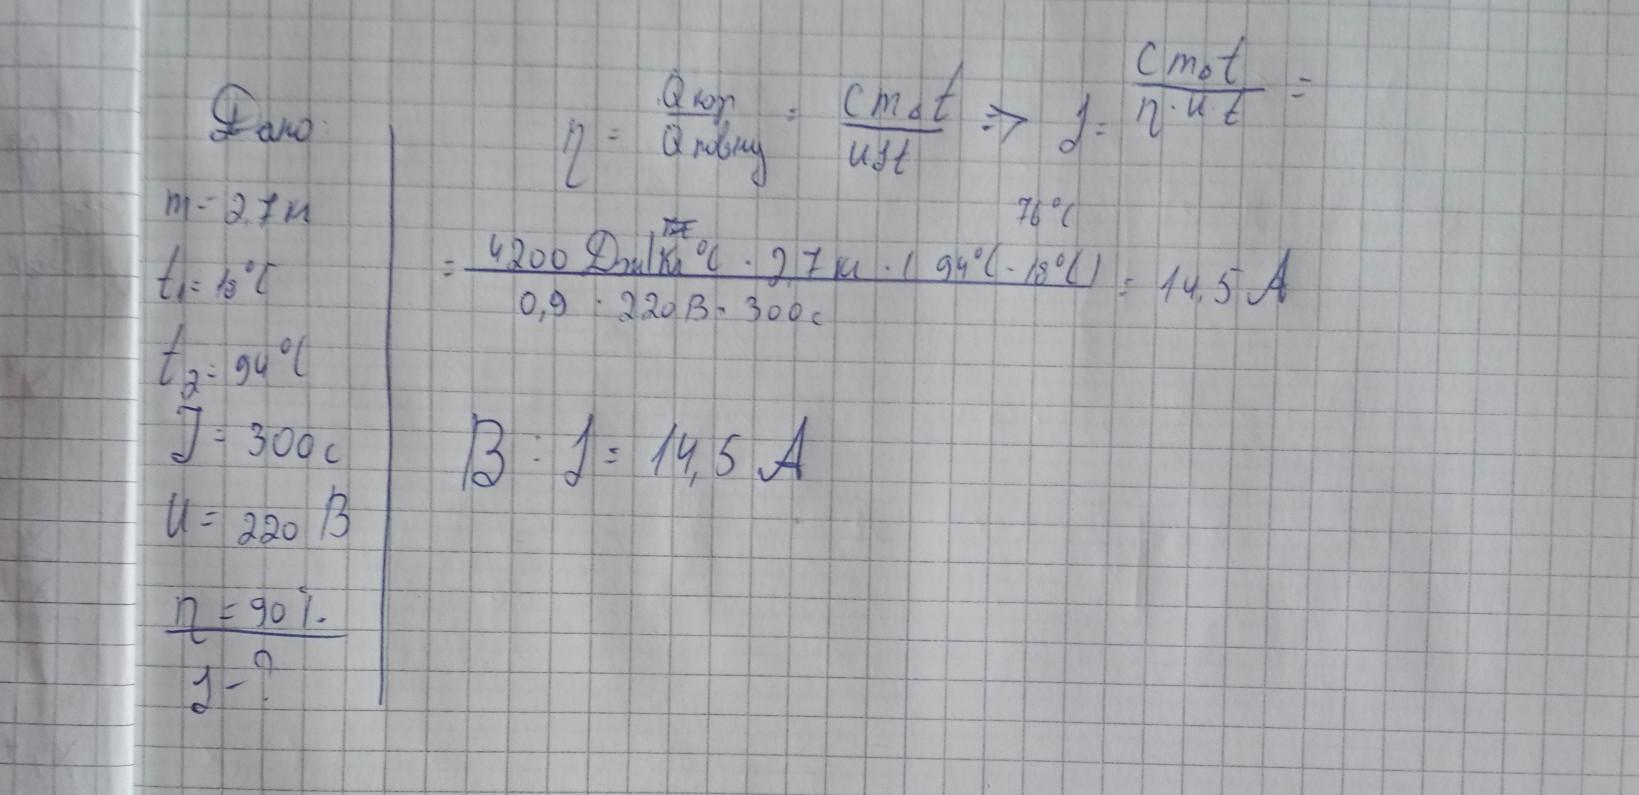 Дано:
m = 2,7 кг
t₁ = 18°C
t₂ = 94°C
T = 300 c
U = 220 В
η = 90 %
J - ?
η = Qкор / Qповну = cmΔt / UJt ⇒ J = cmΔt / η·U·t =
76°C
= 4200 Дж/кг°C · 2,7 кг · (94°C - 18°C) / 0,9 · 220 В · 300 c = 14,5 A
В: J = 14,5 A